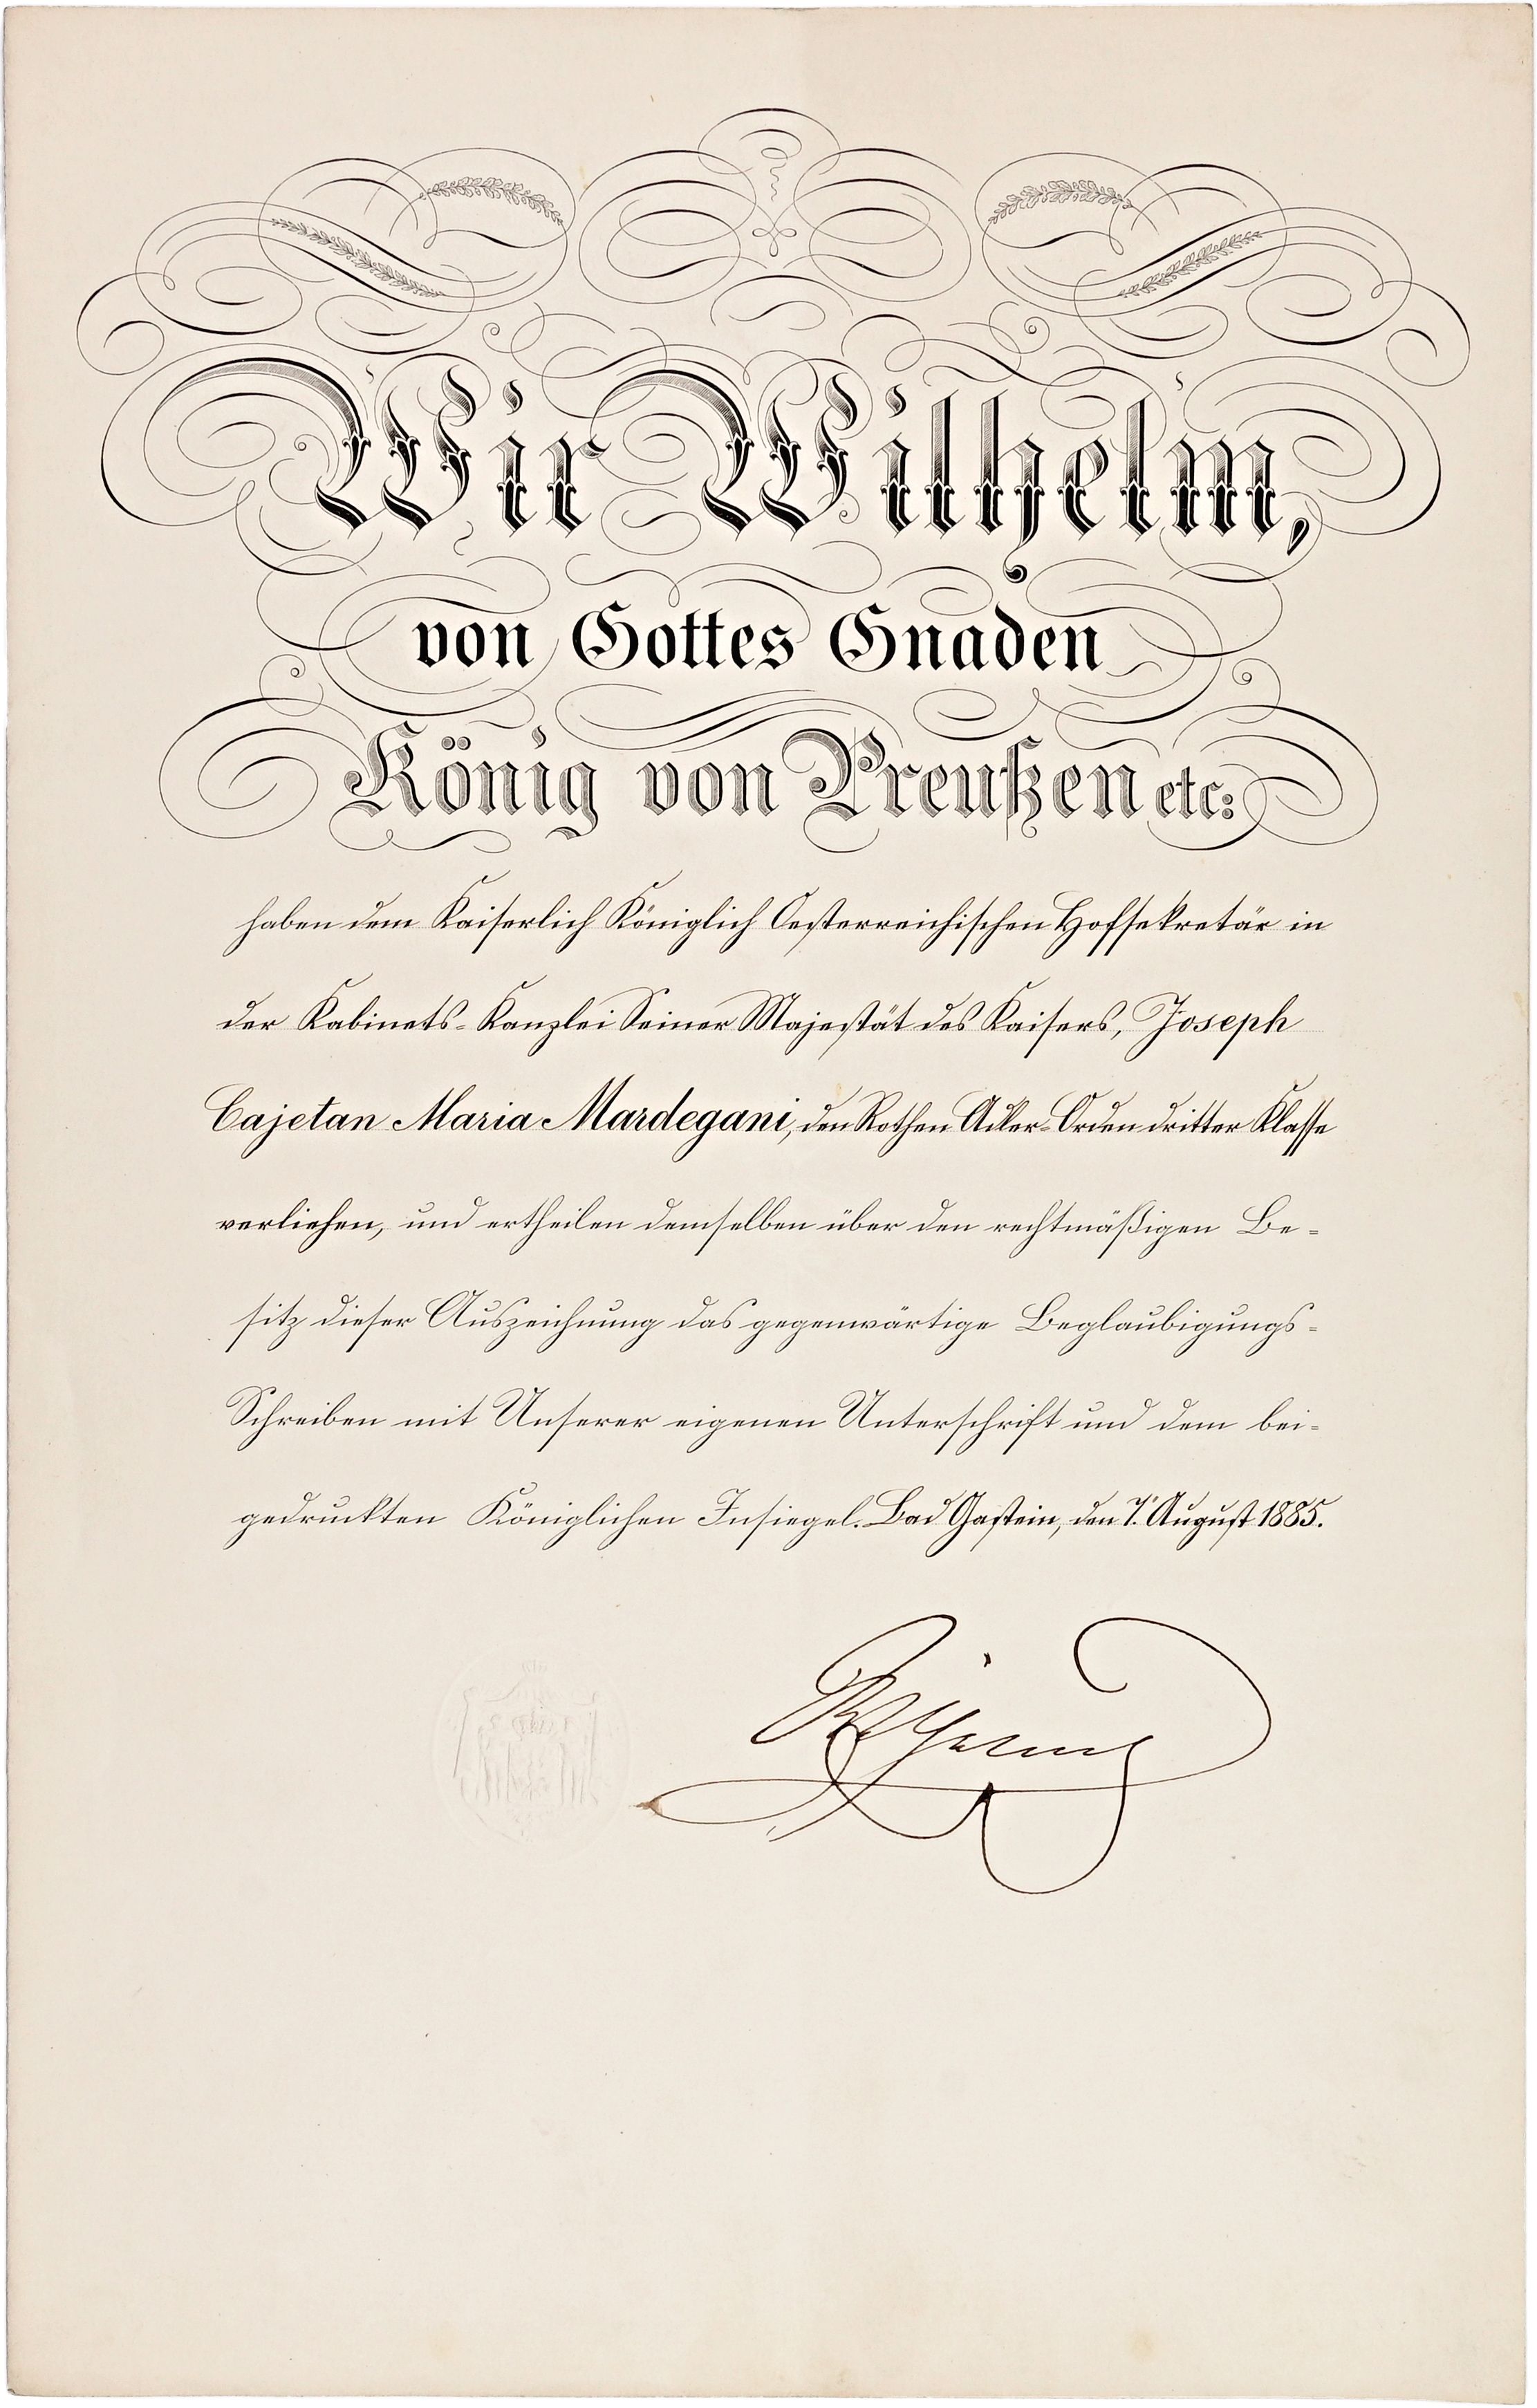 Wir Wilhelm,
von Gottes Gnaden
König von Preußen etc:
haben dem Kaiserlich Königlich Oesterreichischen Hofsekretär in
der Kabinets-Kanzlei Seiner Majestät des Kaisers, Joseph
Cajetan Maria Mardegani, den Rothen Adler-Orden dritter Klasse
verliehen, und ertheilen demselben über den rechtmäßigen Be-
sitz dieser Auszeichnung das gegenwärtige Beglaubigungs-
Schreiben mit Unserer eigenen Unterschrift und dem bei-
gedruckten Königlichen Insiegel. Bad Gastein, den August 1885.
Wilhelm